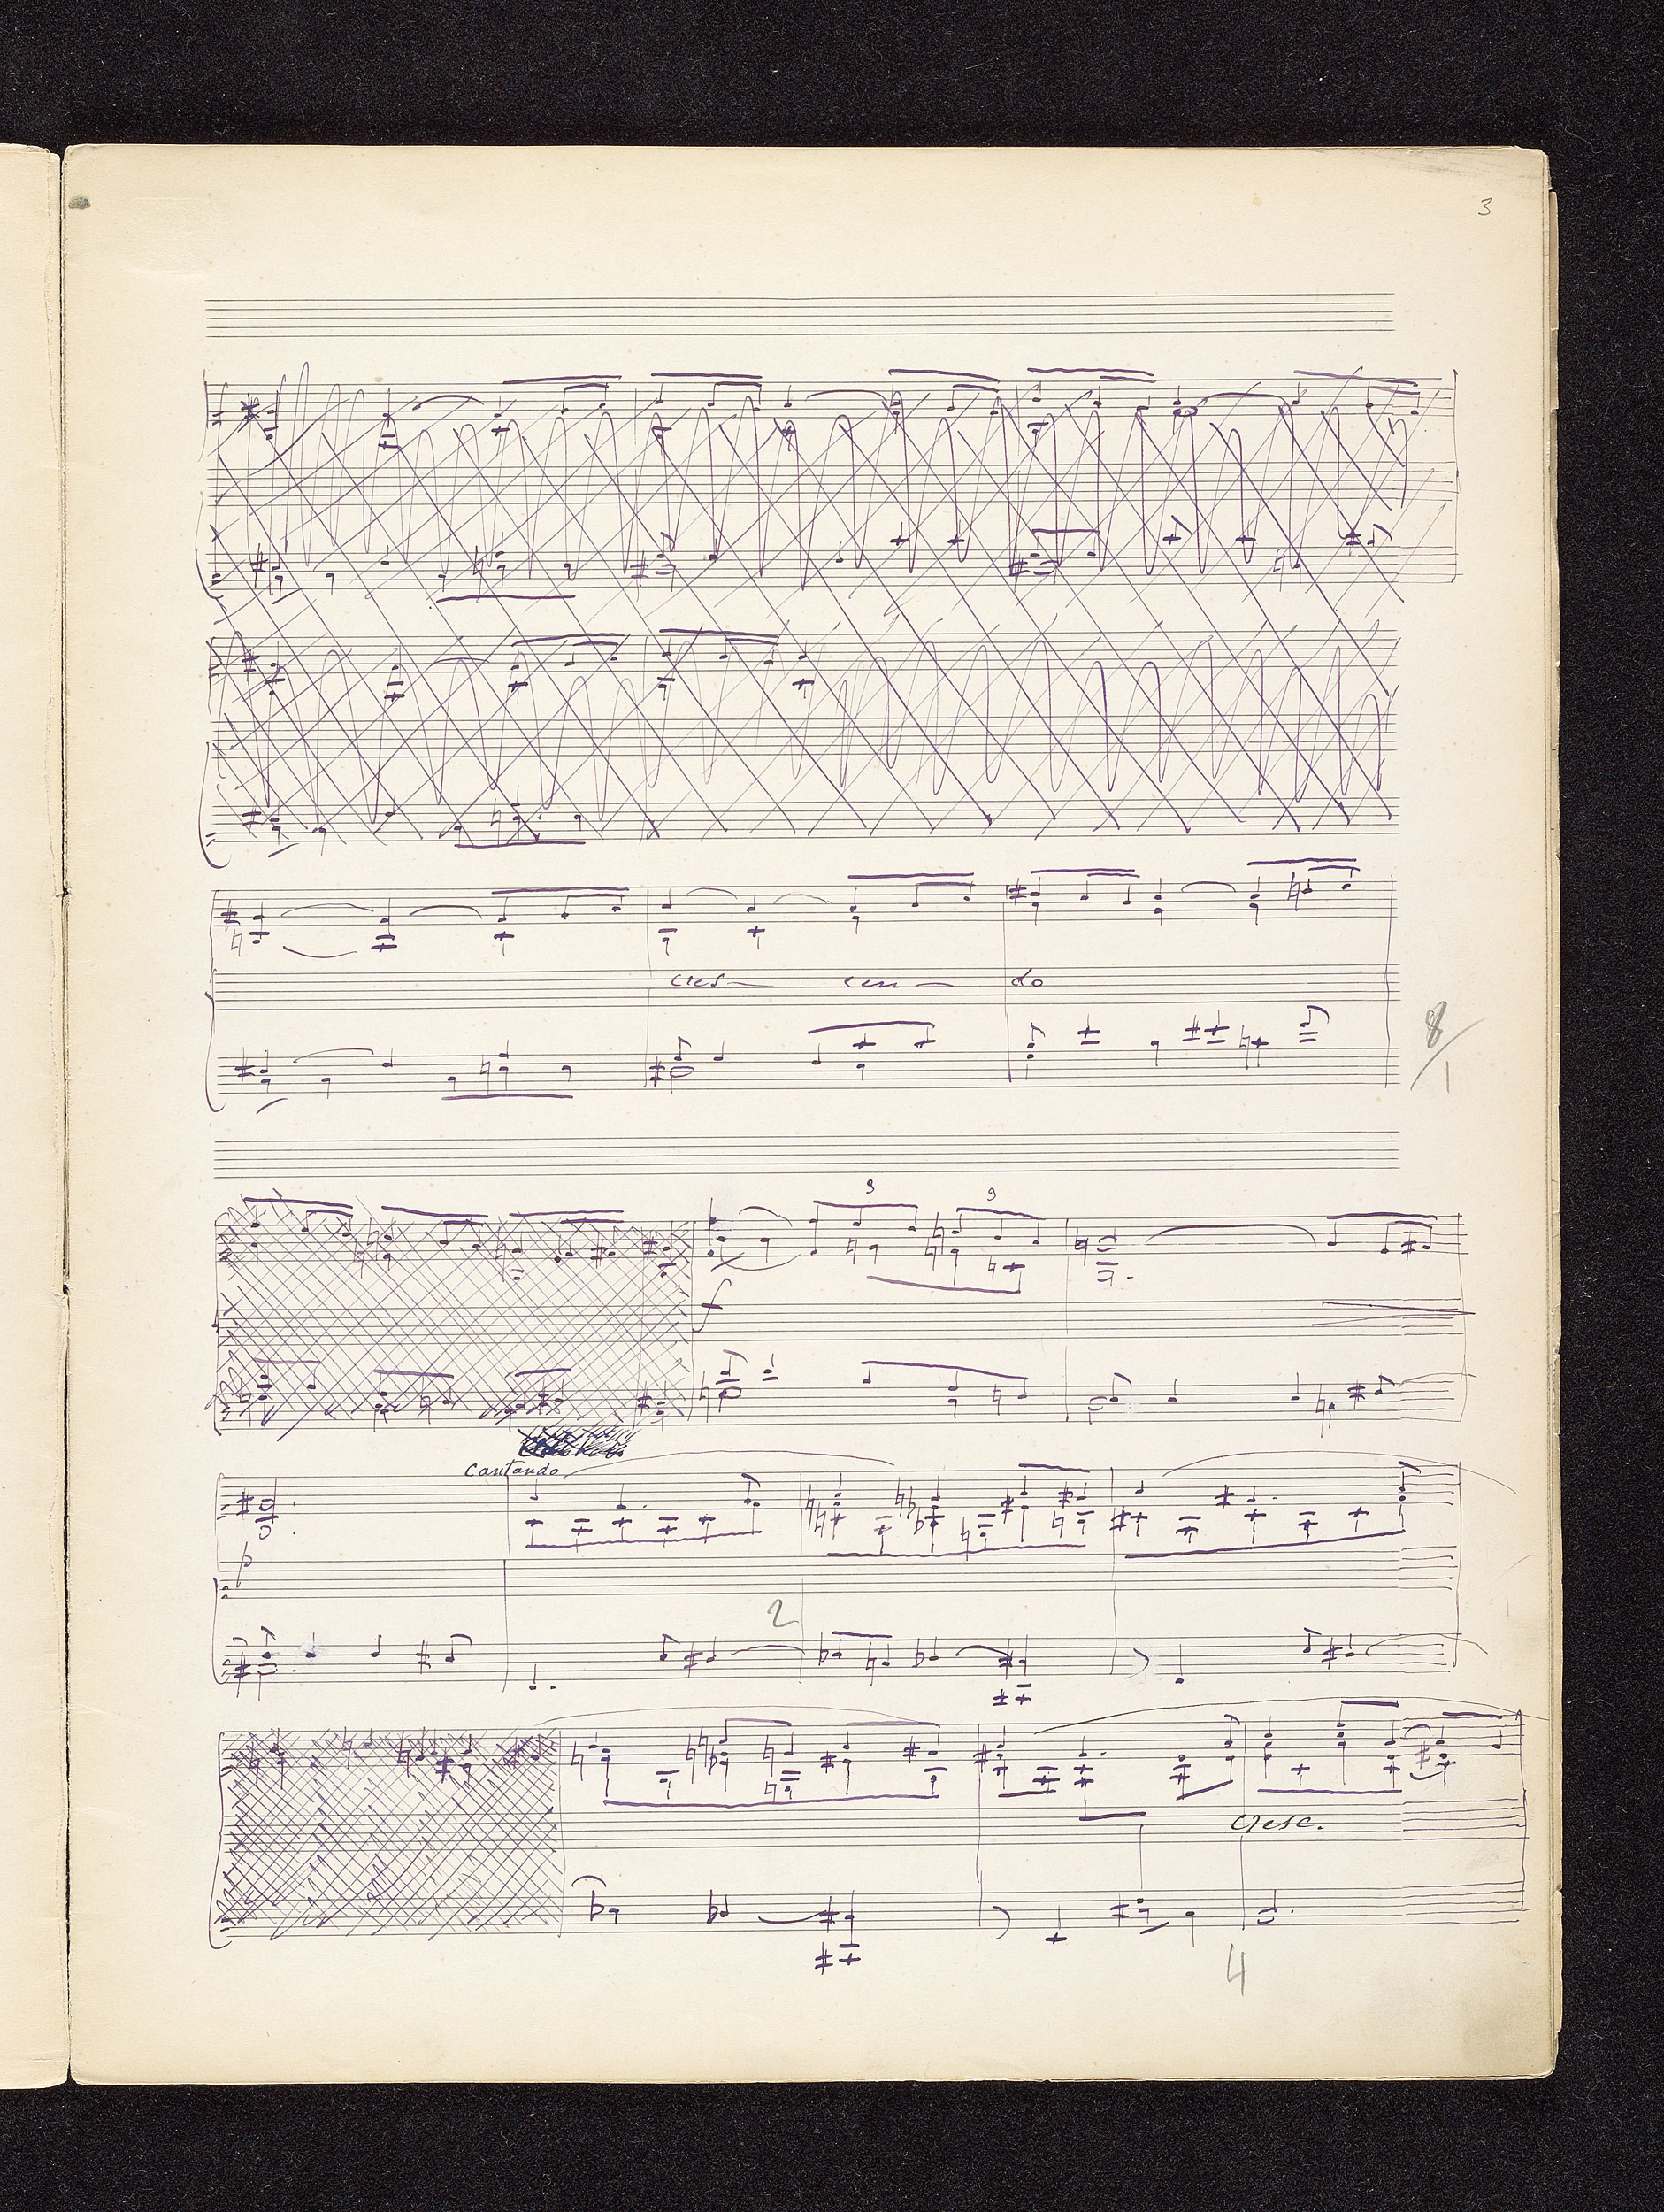 3
cres- cen - do
8/1
3 3
f
Cantando
p
2
cresc.
4